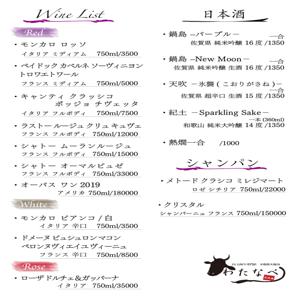 Wine List
Red
・モンカロ ロッソ
イタリア ミディアム 750ml/3500
・ペイドック カバルネ ソーヴィニヨン
トロワエトワール
フランス ミディアム 750ml/5000
・キャンティ クラッシコ
ポッジョ チヴェッタ
イタリア フルボディ 750ml/7500
・ラストー ルージュ クリュ キュヴェ
フランス フルボディ 750ml/12000
・シャトー ムーランルージュ
フランス フルボディ 750ml/15000
・シャトー オーマルビュゼ
フランス フルボディ 750ml/33000
・オーパス ワン 2019
アメリカ 750ml/180000
White
・モンカロ ビアンコ / 白
イタリア 辛口 750ml/3500
・ドメーヌ ピュシュロンマコン
ペロンヌヴィエイユ ヴィーニュ
フランス 辛口 750ml/8500
Rose
・ローザドルチェ&ガッバーナ
イタリア 750ml/35000
日本酒
・鍋島 –パープル– 一合
佐賀県 純米吟醸 16度 /1350
・鍋島 –New Moon– 一合
佐賀県 純米吟醸 生酒 16度 /1350
・天吹 –氷裂(こおりがさね)– 一合
佐賀県 超辛口 生酒 15度 /1350
・紀土 –Sparkling Sake–
一本(360ml)
和歌山 純米大吟醸 14度 /3150
・熱燗一合 /1000
シャンパン
・メトード クラシコ ミレジマート
ロゼ シチリア 750ml/22000
・クリスタル
シャンパーニュ フランス 750ml/150000
わたなべ